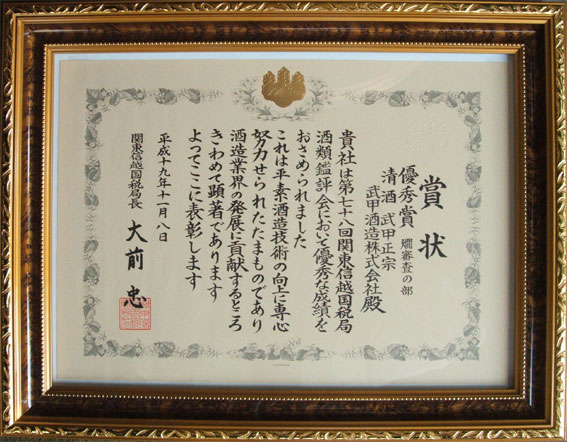 賞状
優秀賞 燗審査の部
清酒 武甲正宗
武甲酒造株式会社殿
貴社は第七十八回関東信越国税局
酒類鑑評会において優秀な成績を
おさめられました
これは平素酒造技術の向上に専心
努力せられたたまものであり
酒造業界の発展に貢献するところ
きわめて顕著であります
よってここに表彰します
平成十九年十一月八日
関東信越国税局長 大前忠